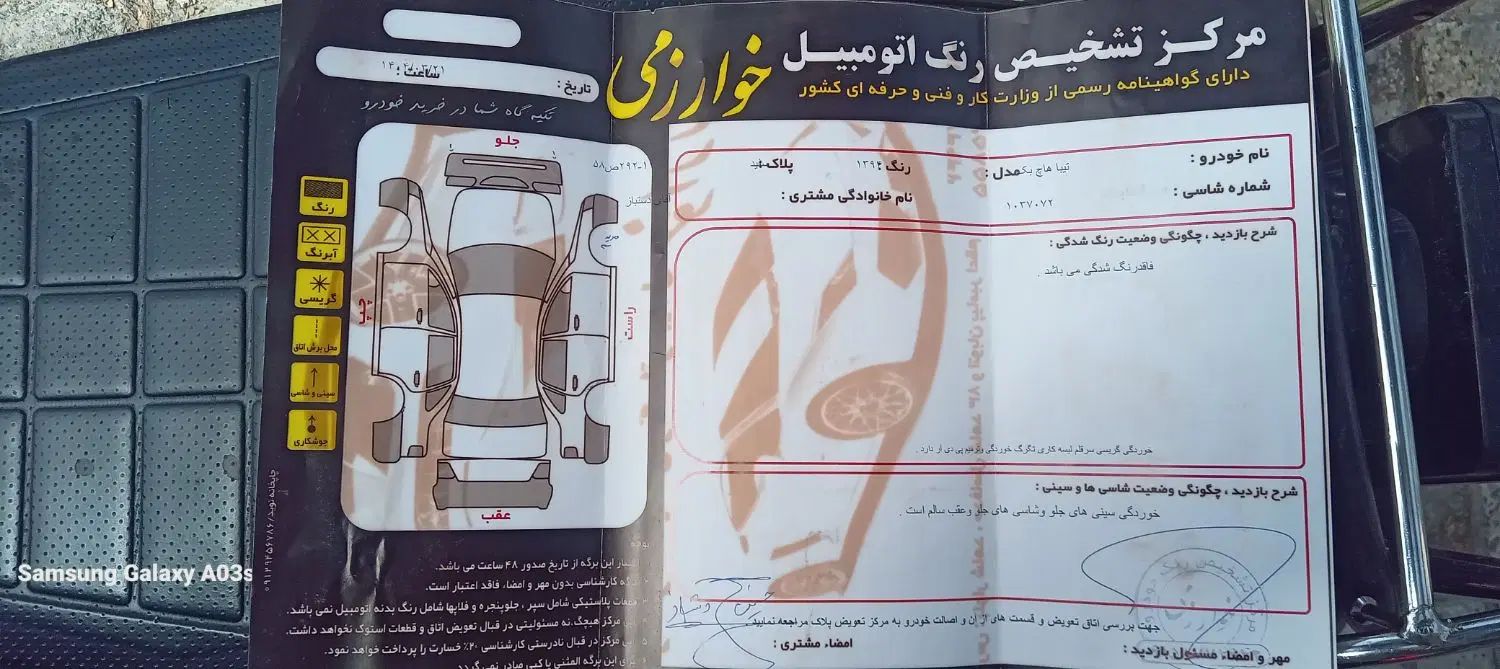 مرکز تشخیص رنگ اتومبیل
خوارزمی
دارای گواهینامه رسمی از وزارت کار و فنی و حرفه ای کشور
ساعت :
تاریخ :
تکیه گاه شما در خرید خودرو
نام خودرو :
تیبا هاچ بک
مدل :
۱۳۹۴
رنگ :
پلاک :
۵۸ص۲۹۲-۱
شماره شاسی :
۱۰۳۷۰۷۲
نام خانوادگی مشتری :
آقای دستیاز
شرح بازدید ، چگونگی وضعیت رنگ شدگی :
فاقدرنگ شدگی می باشد .
خوردگی گریسی سرقلم لیسه کاری تگرگ خوردگی وترمیم پی دی ار دارد .
شرح بازدید ، چگونگی وضعیت شاسی ها و سینی :
خوردگی سینی های جلو وشاسی های جلو وعقب سالم است .
جهت بررسی اتاق تعویض و قسمت های از آن و اصالت خودرو به مرکز تعویض پلاک مراجعه نمایید.
مهر و امضاء مسئول بازدید :
امضاء مشتری :
جلو
چپ
راست
عقب
رنگ
آبرنگ
گریسی
محل برش اتاق
سینی و شاسی
جوشکاری
این برگه از تاریخ صدور ۴۸ ساعت می باشد.
کارشناسی بدون مهر و امضاء، فاقد اعتبار است.
پلاستیکی شامل سپر ، جلوپنجره و قلابها شامل رنگ بدنه اتومبیل نمی باشد.
مرکز هیچگونه مسئولیتی در قبال تعویض اتاق و قطعات استوک نخواهد داشت.
مرکز در قبال نادرستی کارشناسی ۲۰٪ خسارت را پرداخت خواهد نمود.
این برگه المثنی یا کپی صادر نمی گردد.
Samsung Galaxy A03s